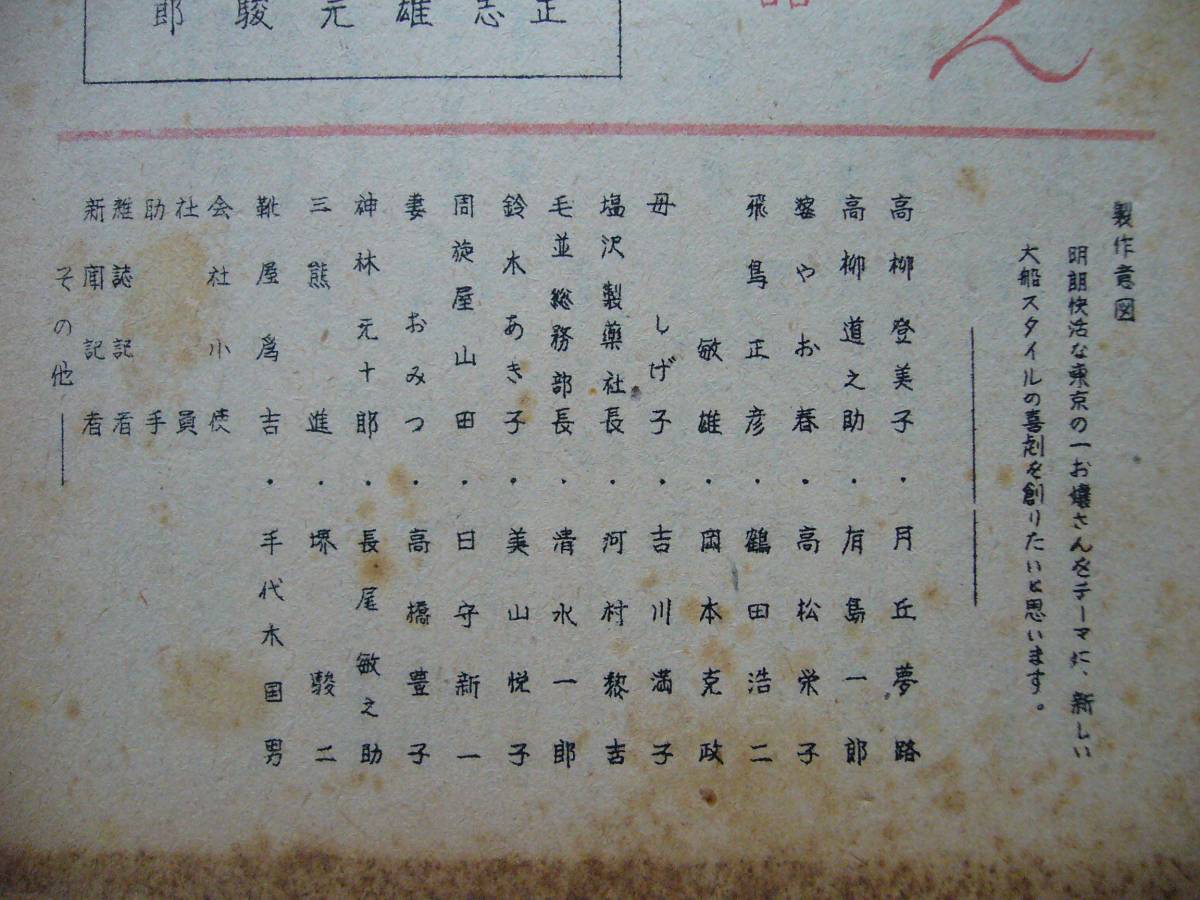 ん
正
志
雄
元
駿
郎
製作意図
明朗快活な東京の一お嬢さんをテーマに、新しい
大船スタイルの喜劇を創りたいと思います。
高柳登美子・月丘夢路
高柳道之助・有島一郎
婆やお春・高松栄子
飛鳥正彦・鶴田浩二
敏雄・岡本克政
母しげ子・吉川満子
塩沢製薬社長・河村黎吉
毛並総務部長・清水一郎
鈴木あき子・美山悦子
周旋屋山田・日守新一
妻おみつ・高橋豊子
神林元十郎・長尾敏之助
三熊進・堺駿二
靴屋為吉・手代木国男
会社小使
社員
助手
雑誌記者
新聞記者
その他